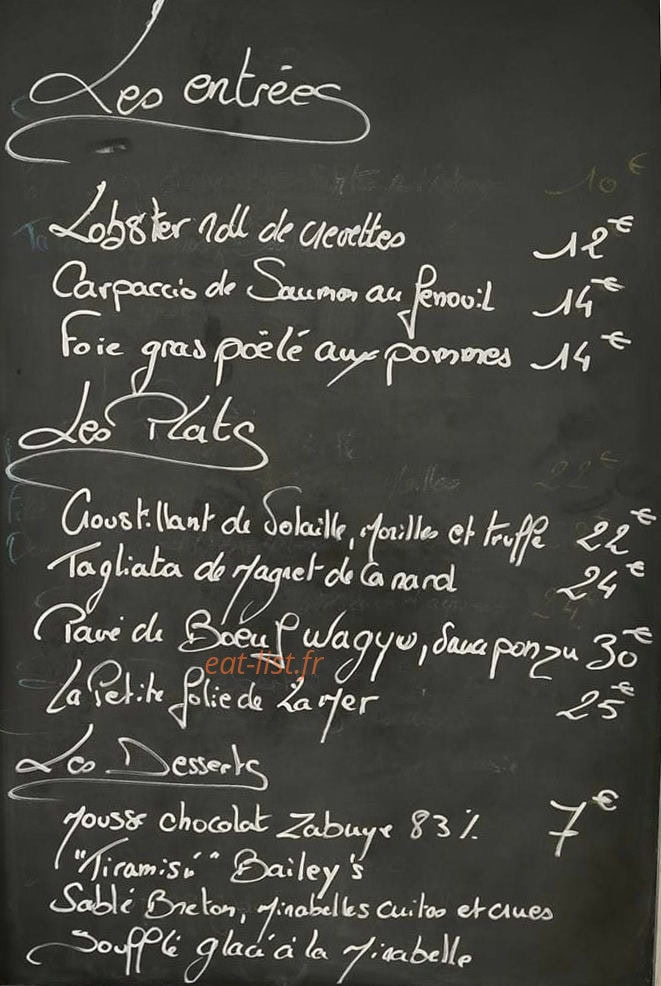 Les entrées
10 €
Lobster roll de crevettes 12 €
Carpaccio de Saumon au fenouil 14 €
Foie gras poêlé aux pommes 14 €
Les Plats
22 €
Croustillant de Volaille, Morilles et truffe 22 €
Tagliata de Magret de Canard 24 €
Pavé de Boeuf Wagyu, sauce ponzu 30 €
eat-list.fr
La Petite folie de La Mer 25 €
Les Desserts
Mousse chocolat Zabuye 83 % 7 €
"Tiramisù" Bailey's
Sablé Breton, Mirabelles cuites et crues
Soufflé glacé à la Mirabelle